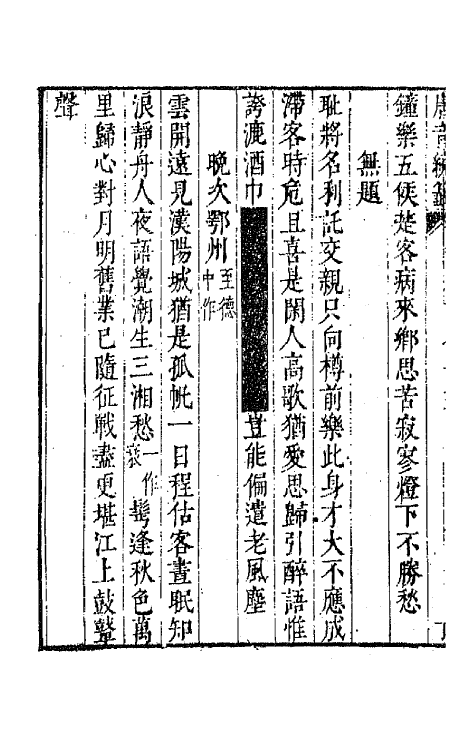 唐音統籤
鐘樂五侯楚客病來鄉思苦寂寥燈下不勝愁
無題
耻將名利託交親只向樽前樂此身才大不應成
滯客時危且喜是閑人高歌猶愛思歸引醉語惟
誇漉酒巾 豈能偏遣老風塵
晚次鄂州至德中作
雲開遠見漢陽城猶是孤帆一日程估客晝眠知
浪靜舟人夜語覺潮生三湘愁一作衰鬢逢秋色萬
里歸心對月明舊業已隨征戰盡更堪江上鼓鼙
聲